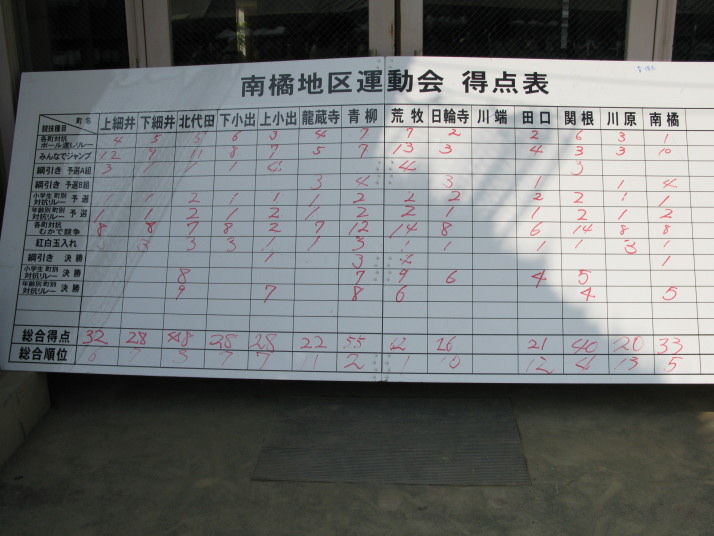 南橘地区運動会 得点表
町名 競技種目 上細井 下細井 北代田 下小出 上小出 龍蔵寺 青柳 荒牧 日輪寺 川端 田口 関根 川原 南橘
各町対抗 ボール渡しリレー 4 5 5 6 3 4 7 7 2 2 6 3 1
みんなでジャンプ 12 9 11 8 7 5 7 13 3 4 3 3 10
綱引き 予選A組 3 1 1 1 4 4 3
綱引き 予選B組 3 4 3 1 1 4
小学生 町別 対抗リレー 予選 1 1 2 1 1 1 2 1 2 2 2 1 1
年齢別 町別 対抗リレー 予選 1 1 2 1 2 1 2 2 1 1 2 1 2
各町対抗 むかで競争 8 8 7 8 2 7 12 14 8 6 14 8 8
紅白玉入れ 3 3 3 1 1 3 1 1 1 1 3 1
綱引き 決勝 1 3 1
小学生 町別 対抗リレー 決勝 8 7 9 6 4 5
年齢別 町別 対抗リレー 決勝 9 7 8 6 4 5
総合得点 32 28 48 28 28 22 55 62 26 21 40 20 33
総合順位 6 7 3 7 7 11 2 1 10 12 4 13 5